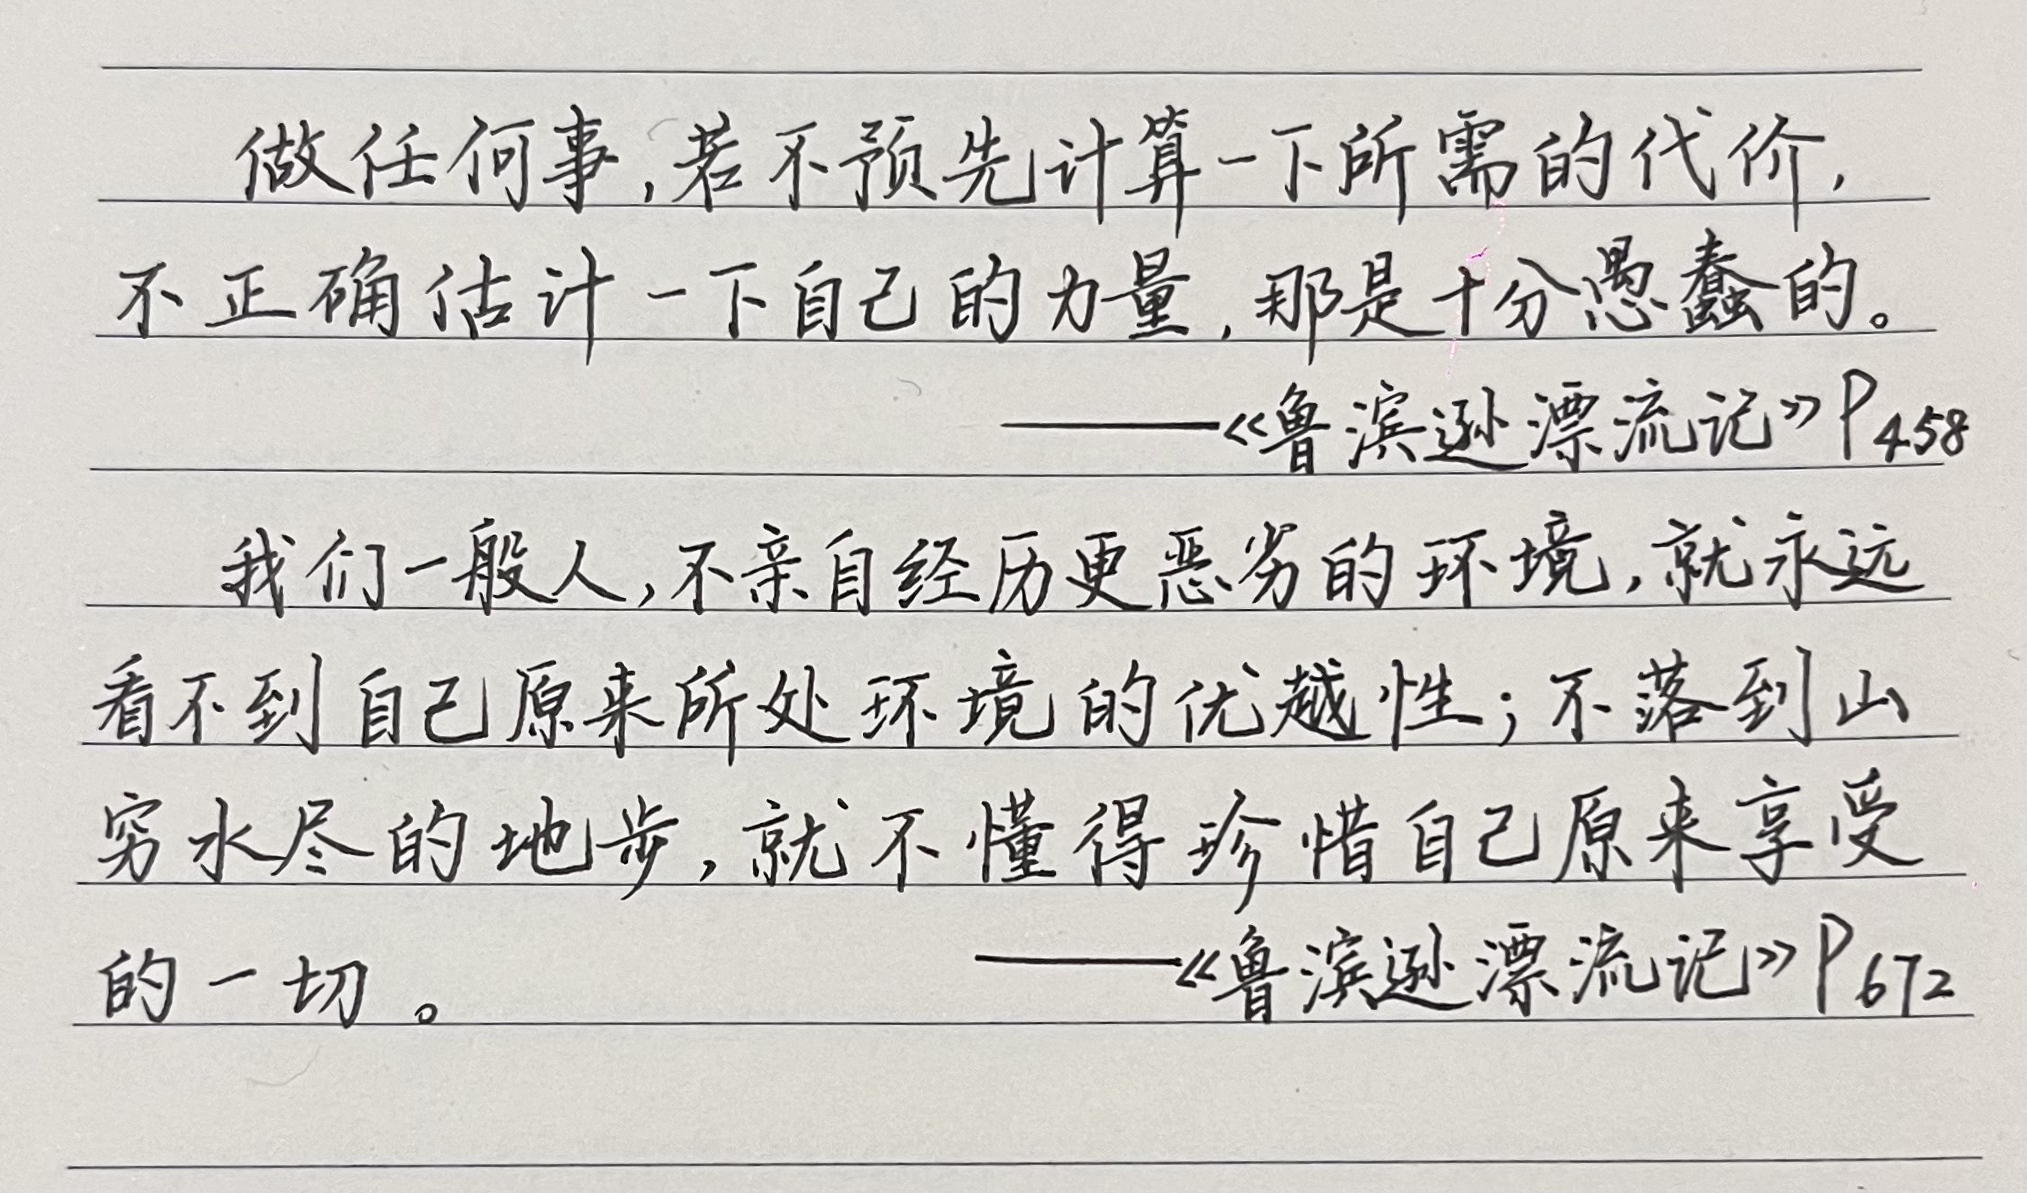 做任何事,若不预先计算一下所需的代价,
不正确估计一下自己的力量,那是十分愚蠢的。
——《鲁滨逊漂流记》P458
我们一般人,不亲自经历更恶劣的环境,就永远
看不到自己原来所处环境的优越性;不落到山
穷水尽的地步,就不懂得珍惜自己原来享受
的一切。 ——《鲁滨逊漂流记》P672